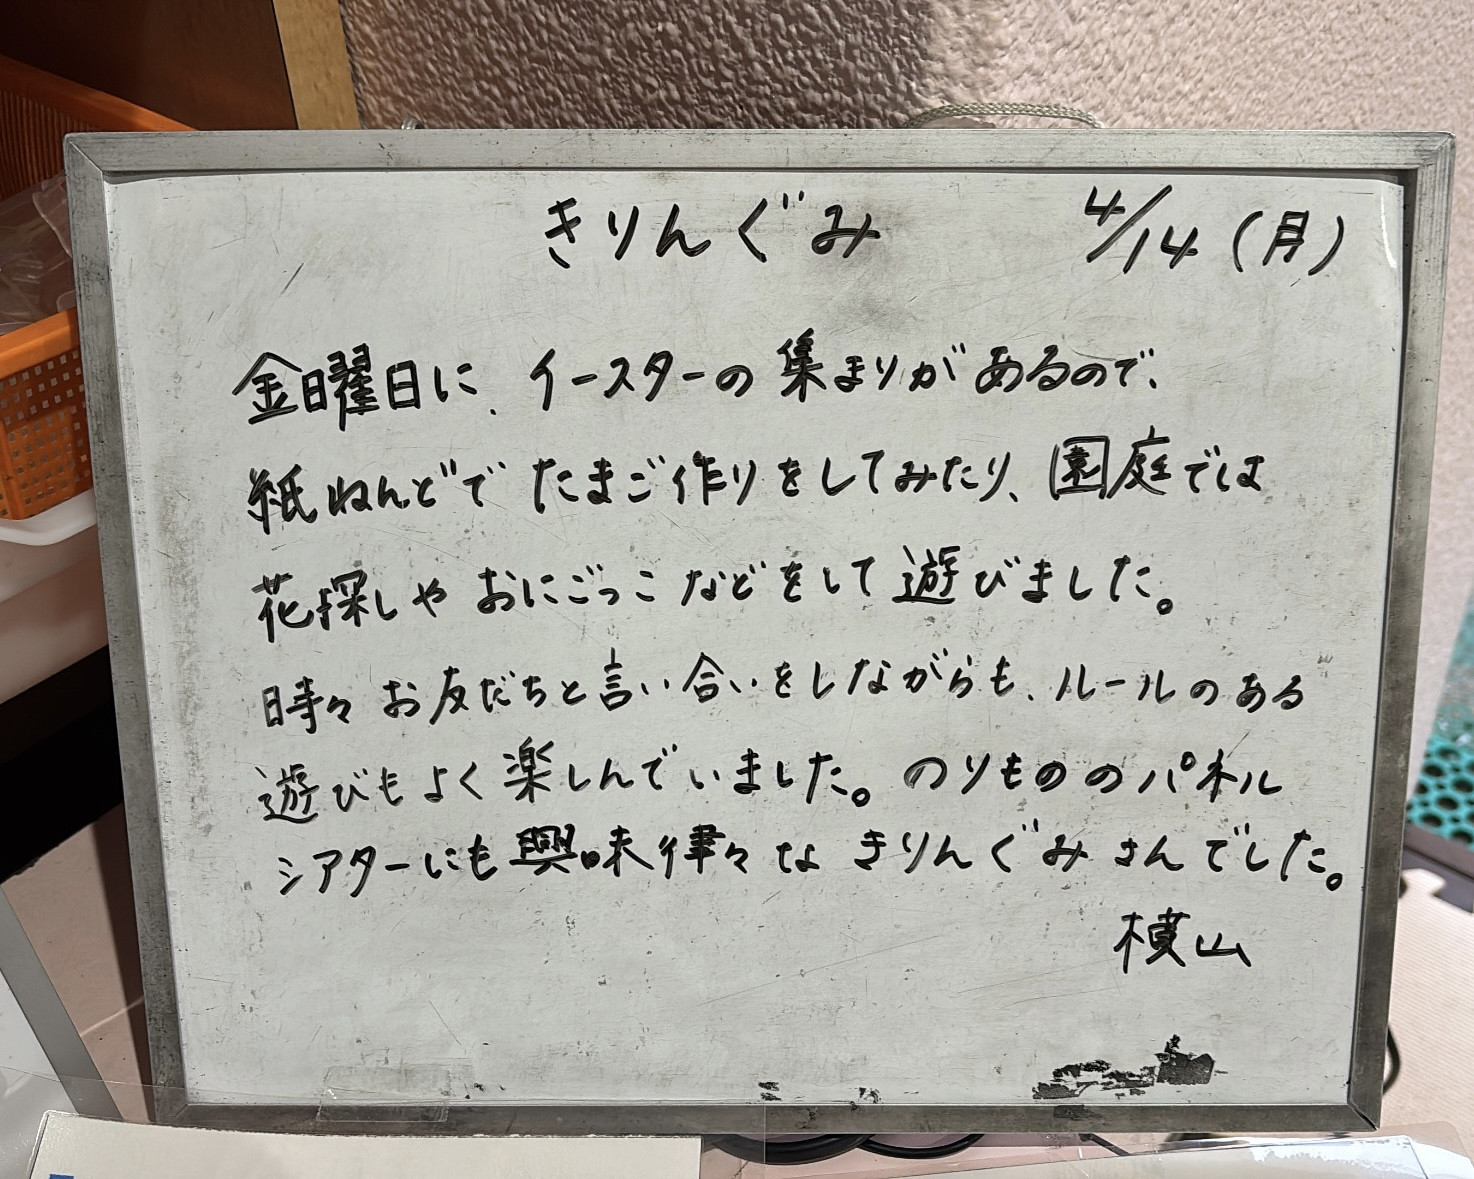 きりんぐみ 4/14(月)
金曜日に、イースターの集まりがあるので、
紙ねんどでたまご作りをしてみたり、園庭では
花探しやおにごっこなどをして遊びました。
時々お友だちと言い合いをしながらも、ルールのある
遊びもよく楽しんでいました。のりもののパネル
シアターにも興味津々なきりんぐみさんでした。
横山